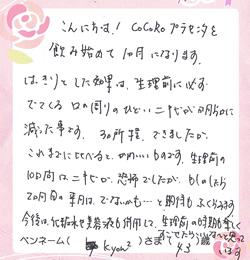 こんにちは! CoCoRo プラセンタを
飲み始めて 1ヵ月になります。
はっきりとした効果は、生理前に必ず
でてくる 口の周りのひどいニキビが
減った事です。 3ヵ所程 できましたが、
これまでに比べると、かわいいものです。生理前の
10日間はニキビが恐怖でしたが
2ヵ月目の 来月は、でないかも…と期待もふくらみます
今後は、化粧水や美容液も併用して、生理前の時期も楽しく
すごせたらいいな〜と思って
います
ペンネーム( kyon² )さま( 43 )歳